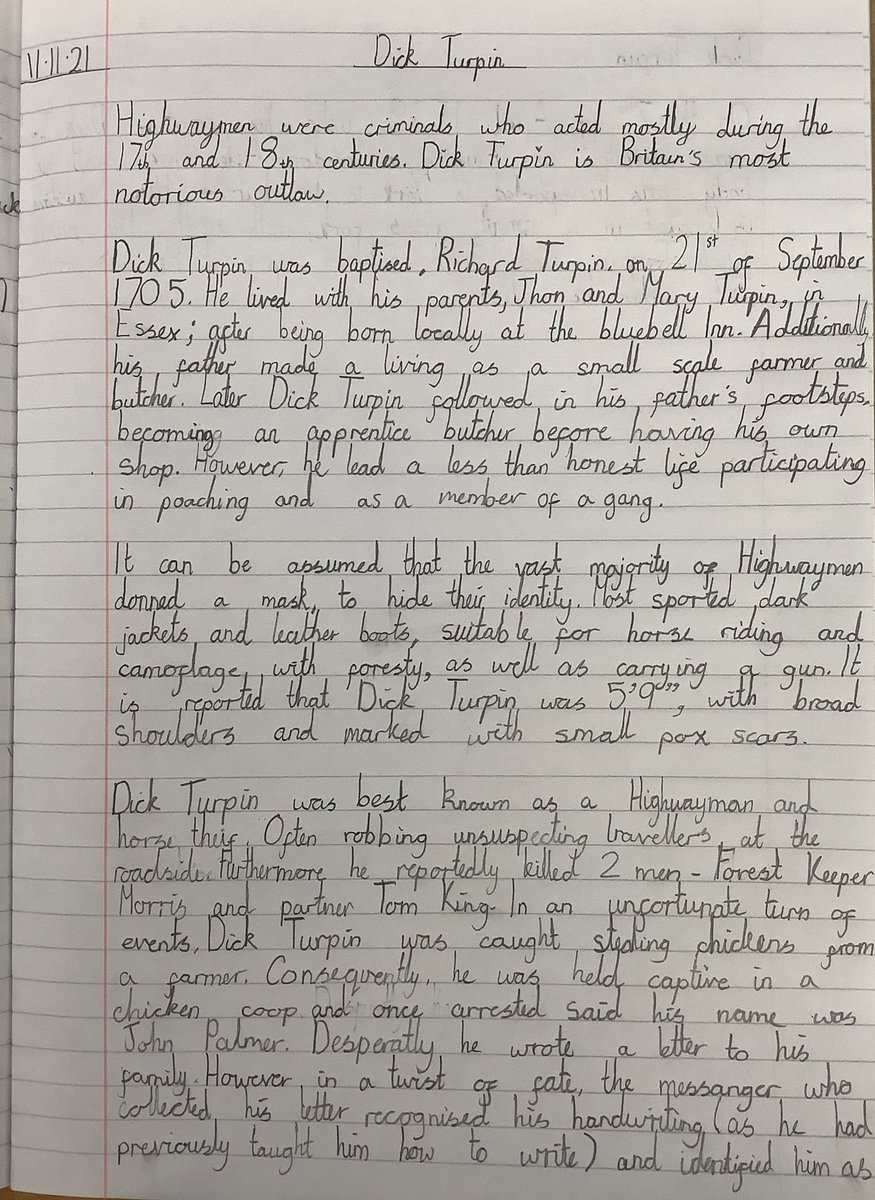 11.11.21
Dick Turpin
Highwaymen were criminals who acted mostly during the
17th and 18th centuries. Dick Turpin is Britain's most
notorious outlaw.
Dick Turpin was baptised, Richard Turpin. on 21st of September
1705. He lived with his parents, Jhon and Mary Turpin, in
Essex; after being born locally at the bluebell Inn. Additionally
his father made a living as a small scale farmer and
butcher. Later Dick Turpin followed in his father's footsteps,
becoming an apprentice butcher before having his own
shop. However, he lead a less than honest life participating
in poaching and as a member of a gang.
It can be assumed that the vast majority of Highwaymen
donned a mask, to hide their identity. Most sported dark
jackets and leather boots, suitable for horse riding and
camoflage, with foresty, as well as carrying a gun. It
is reported that Dick Turpin was 5'9", with broad
shoulders and marked with small pox scars.
Dick Turpin was best known as a Highwayman and
horse theif. Often robbing unsuspecting travellers, at the
roadside. Furthermore he reportedly killed 2 men - Forest Keeper
Morris and partner Tom King. In an unfortunate turn of
events, Dick Turpin was caught stealing chickens from
a farmer. Consequently, he was held captive in a
chicken coop and once arrested said his name was
John Palmer. Desperatly he wrote a letter to his
family. However, in a twist of fate, the messanger who
collected his letter recognised his handwriting (as he had
previously taught him how to write) and identified him as